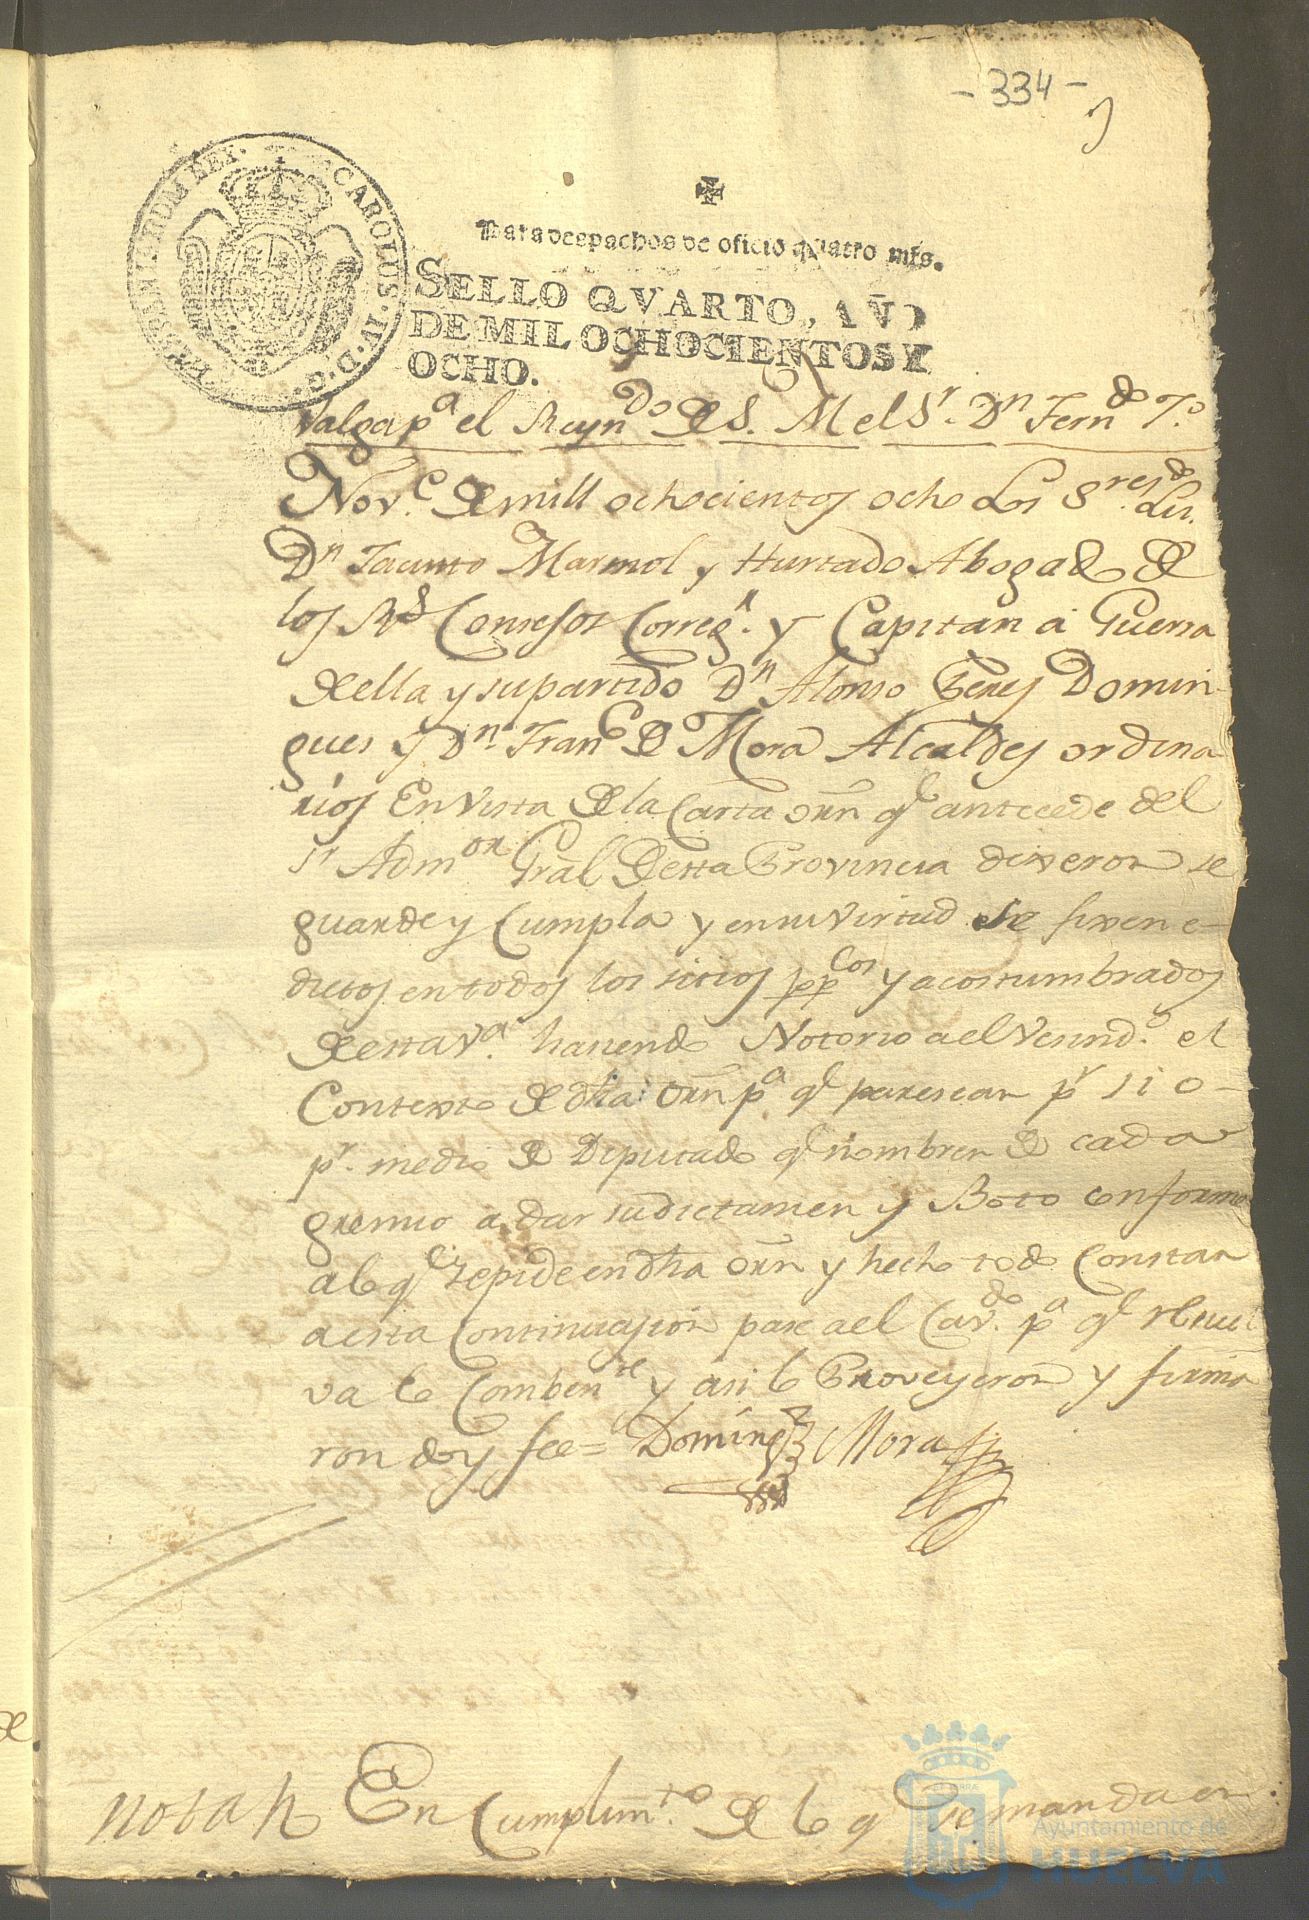 -334-
CAROLUS·IV·D·G· HISPANIAR·DM REX·
Para despachos de oficio quatro mrs.
SELLO QVARTO, AÑO
DE MIL OCHOCIENTOS Y
OCHO.
Valga pa el Reyndo de S. M el Sr. Dn Ferndo 7o
Nove. de mill ochocientos ocho Los Sres. Lizdo.
Dn Jacinto Marmol y Hurtado Abogado de
los Rs Consejos Corregr. y Capitan a Guerra
de ella y su partido Dn Alonso Peres Domin-
gues y Dn. Franco de Mora Alcaldes ordina
rios En Vista de la Carta orn qe antecede del
Sr Admor Gral de esta Provincia dixeron se
guarde y Cumpla y en su virtud se fixen e-
dictos en todos los sitios ppcos y acostumbrados
de esta Va. haciendo Notorio a el Vecindo. el
Contexto de dha orn pa qe parescan pr si o
pr. medio de Diputado qe nombren de cada
gremio a dar su dictamen y Boto conforme
a lo qe se pide en dha orn y hecho todo Constar
a esta Continuasion pase a el Cavdo. pa qe resuel
va lo Combente y asi lo Proveyeron y firma
ron doy fee= Domíngz Mora
nota En Cumplimto. de lo qe se manda en
Ayuntamiento de
HUELVA